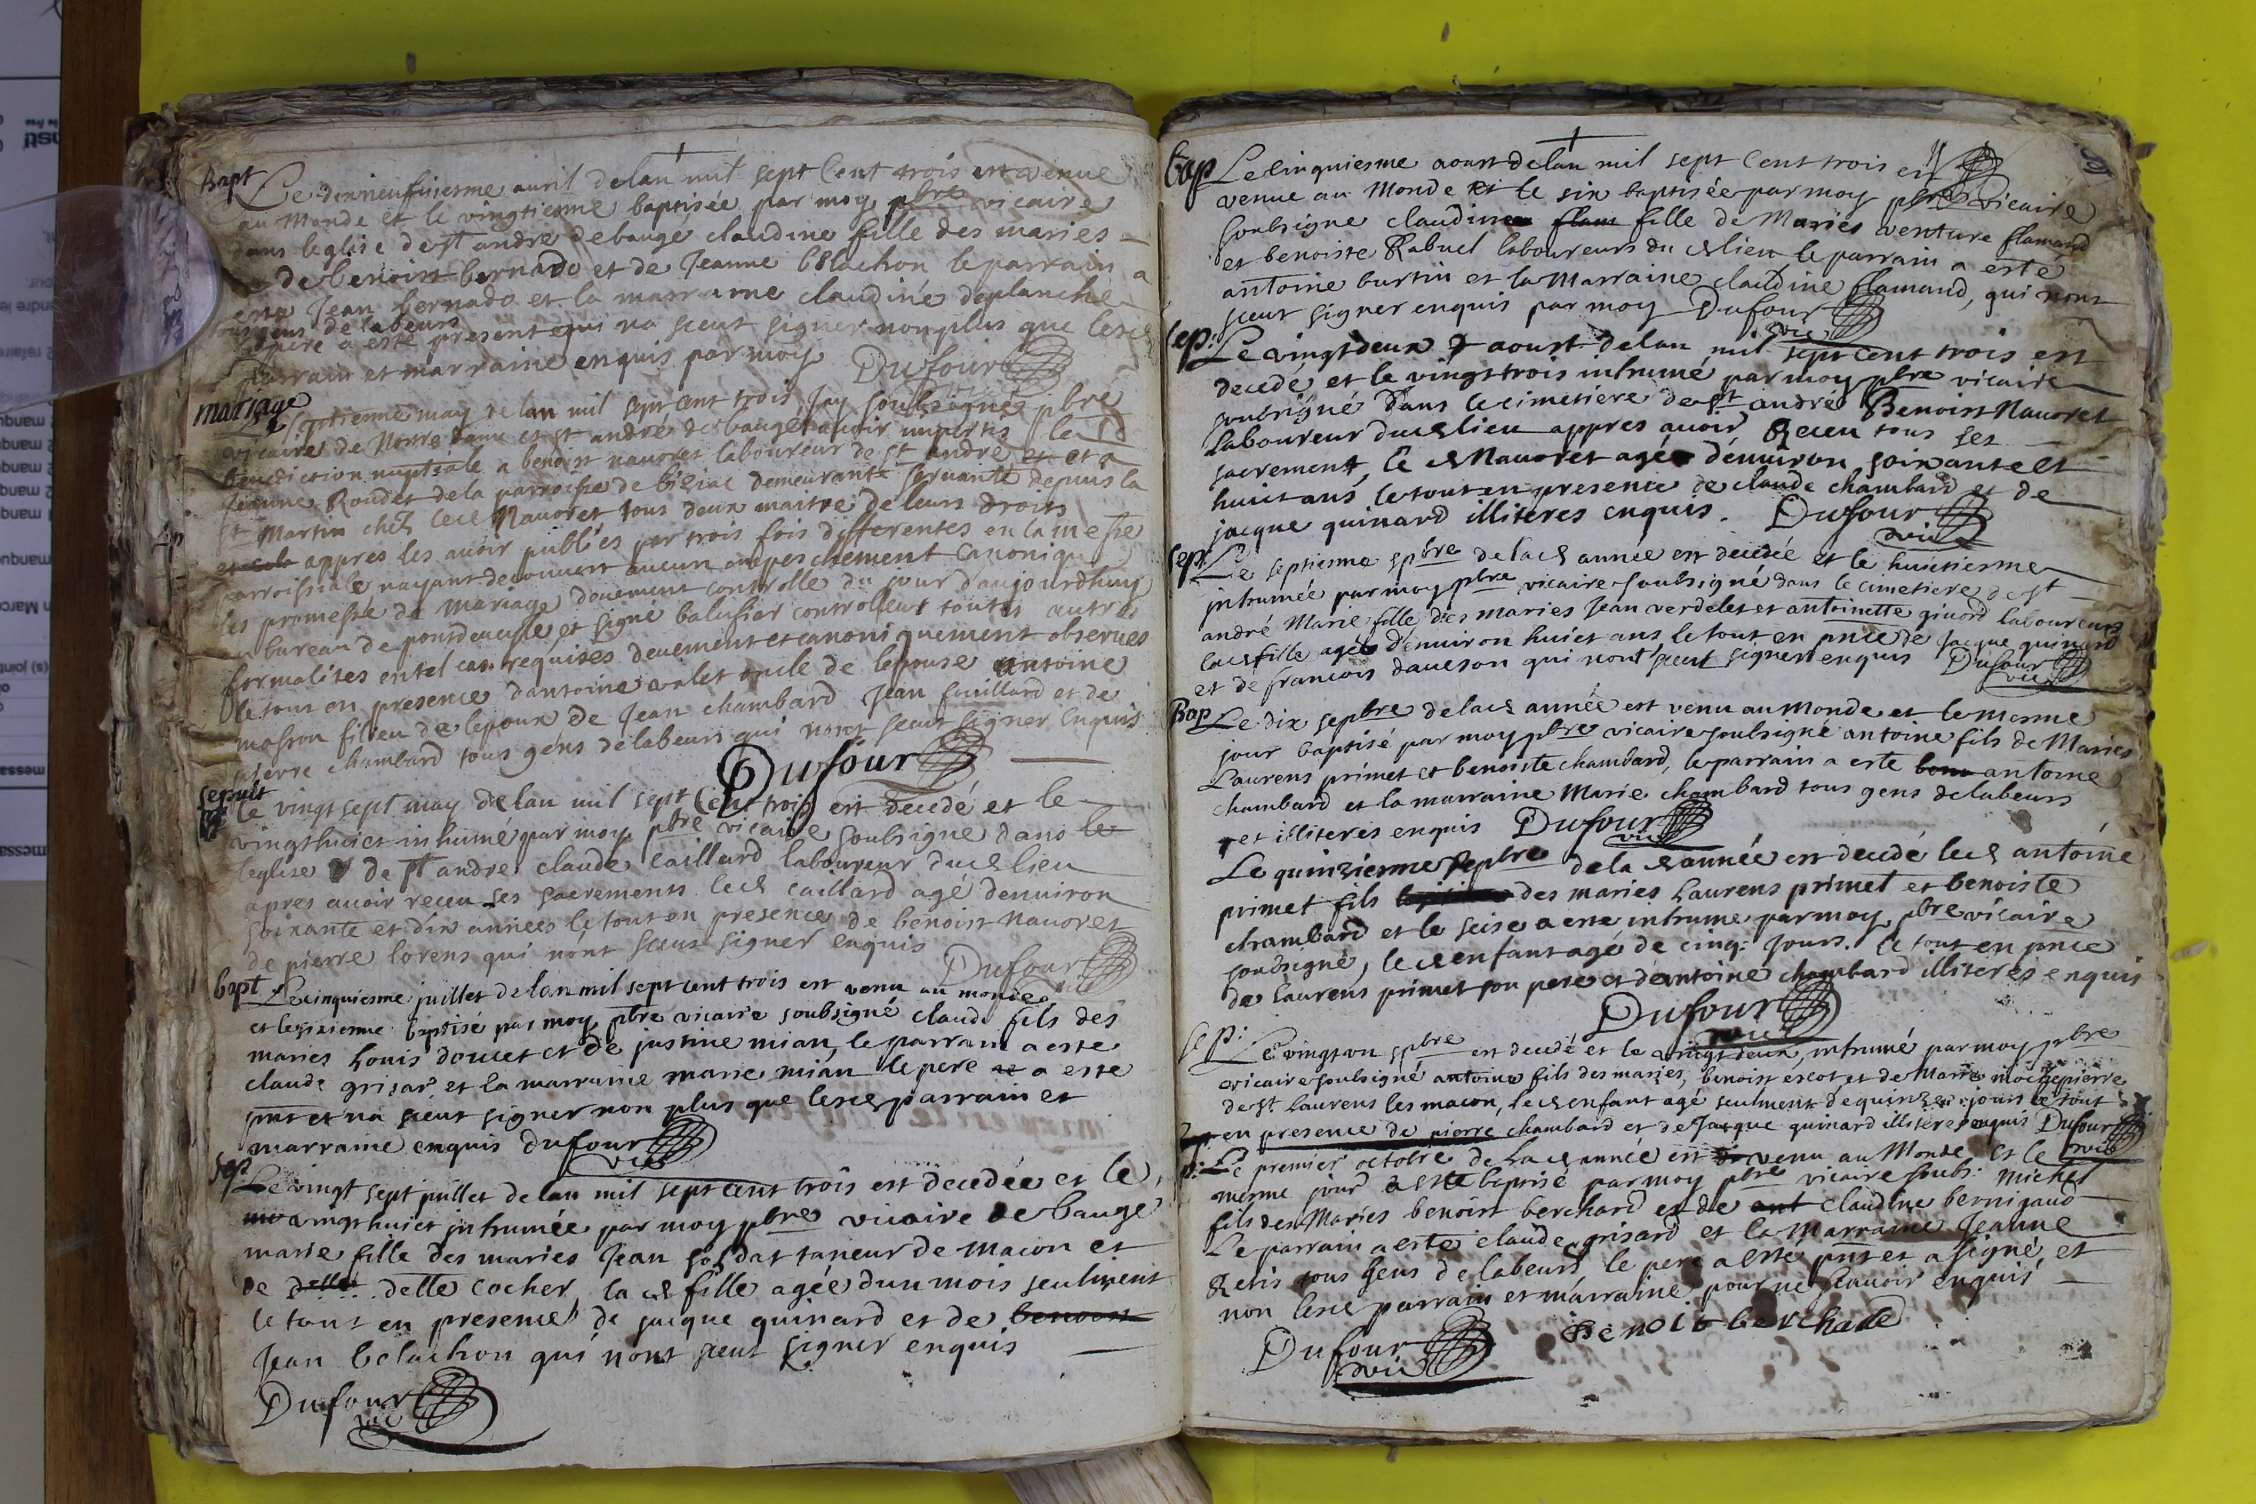 Bapt
Le dixneufuiesme auril delan mil sept Cent trois est venue
au Monde et le vingtiesme baptisée par moy pbre vicaire
dans leglise de st andré debauge claudine fille des maries
de benoist bernado et de Jeanne le parrain a
esté Jean bernado et la marraine claudine deplanche
gens de labeurs
le pere a esté present qui na sceut signer non plus que lesd
parrain et marraine enquis par moy Dufour
mariage
septiesme may de lan mil sept cent trois Jay soubsigné pbre
vicaire de Nostre dame et st andré de baugé auoir imparti la
benediction nuptiale a benoist nauoret laboureur de st andré et a
Jeanne Rondet de la parroisse de biziat demeurante seruante depuis la
st Martin chez led Nauoret tous deux maitre de leurs droits
appres les auoir publiés par trois fois differentes en la messe
parroissiale, nayant decouuert aucun ampeschement Canonique
les promesse de Mariage deuement controlle du jour daujourdhuy
au bureau de pontdeuesle et signé balufier controlleur toutes autres
formalités en tel cas requises deuement et canoniquement obseruees
le tout en presence dantoine valet oncle de lepouse antoine
mosson filieu de lepoux de Jean chambard Jean fouillard et de
pierre chambard tous gens de labeurs qui nont sceut signer Enquis
Dufour
sepult
Le vingt sept may delan mil sept Cent trois est decedé et le
vingthuict inhumé par moy pbre vicaire soubsigne dans le
leglise de st andre claude caillard laboureur dud lieu
apres auoir receu ses sacrements led caillard agé denuiron
soixante et dix années le tout en presence de benoist nauoret
de pierre lorens qui nont sceut signer enquis Dufour
bapt
Le cinquiesme juillet delan mil sept cent trois est venu au monde
et le sixiesme baptisé par moy pbre vicaire soubsigné claude fils des
maries Louis doucet et de justine mian, le parrain a esté
claude grisar et la marraine marie mian le pere a esté
pnt et na sceut signer non plus que lesd parrain et
marraine enquis Dufour
vic
Sep
Le vingt sept juillet delan mil sept cent trois est decedée et le
vingthuict inhumée par moy pbre vicaire de bauge
marie fille des maries Jean soldat taneur de Macon et
de delle delle cocher, la d fille agée dun mois seulment
le tout en presence de jacque guinard et de benoist
Jean belachon qui nont sceut signer enquis
Dufour
vic
bap
Le Cinquiesme aoust delan mil sept Cent trois est
venue au Monde et le six baptisée par moy pbre vicaire
soubsigne claudine flam fille de Maries venture flamand
et benoiste Rabuel laboureurs du d lieu le parrain a esté
antoine burtin et la Marraine claudine flamand, qui nont
sceut signer enquis par moy Dufour
vic
sep:
Le vingtdeux aoust delan mil sept cent trois est
decedé et le vingttrois inhumé par moy pbre vicaire
soubsigné dans le cimetiere de st andré Benoist Nauoret
Laboureur dud lieu appres auoir Receu tous ses
sacrement, le d Nauoret agé denuiron soixante et
huict ans, le tout en presence de claude chambard et de
jacque guinard illiteres enquis. Dufour
vic
sep:
Le septiesme 7bre de lad année est decedée et le huictiesme
inhumée par moy pbre vicaire soubsigné dans le cimetiere de st
andré Marie fille des maries Jean verdelet et antoinette giuord laboureurs
lad fille agée denuiron huict ans le tout en pnce de Jacque guinard
et de francois daueson qui nont sceut signer enquis Dufour
vic
Bap
Le dix sepbre de lad année est venu au Monde et le mesme
jour baptisé par moy pbre vicaire soubsigné antoine fils de Maries
Laurens primet et benoiste chambard, le parrain a esté antoine
chambard et la marraine Marie chambard tous gens de labeurs
et illiteres enquis Dufour
vic
Le quinziesme sepbre de la d année est decedé led antoine
primet fils des maries Laurens primet et benoiste
chambard et le seise a esté inhumé par moy pbre vicaire
soubsigné, led enfant agé de cinq jours. le tout en pnce
de laurens primet son pere et de antoine chambard illiteres enquis
Dufour
vic
sep:
Le vingt un 7bre est decedé et le vingt deux inhumé par moy pbre
vicaire soubsigné antoine fils des maries, benoist escot et de Marie
de st Laurens les macon, led enfant agé seulment de quinze jours le tout
en presence de pierre chambard et de Jacque guinard illiteres enquis Dufour
vic
Le premier octobre de la d année est venu au Monde et le
mesme jour a este baptisé par moy pbre vicaire soubs. michel
fils des Maries benoist berchard et de ant claudine bernigaud
Le parrain a esté claude grisard et la Marraine Jeanne
Retis tous gens de labeurs le pere a esté pnt et a signé et
non lesd parrain et marraine pour ne scauoir enquis
Dufour
vic
Benoit berchard